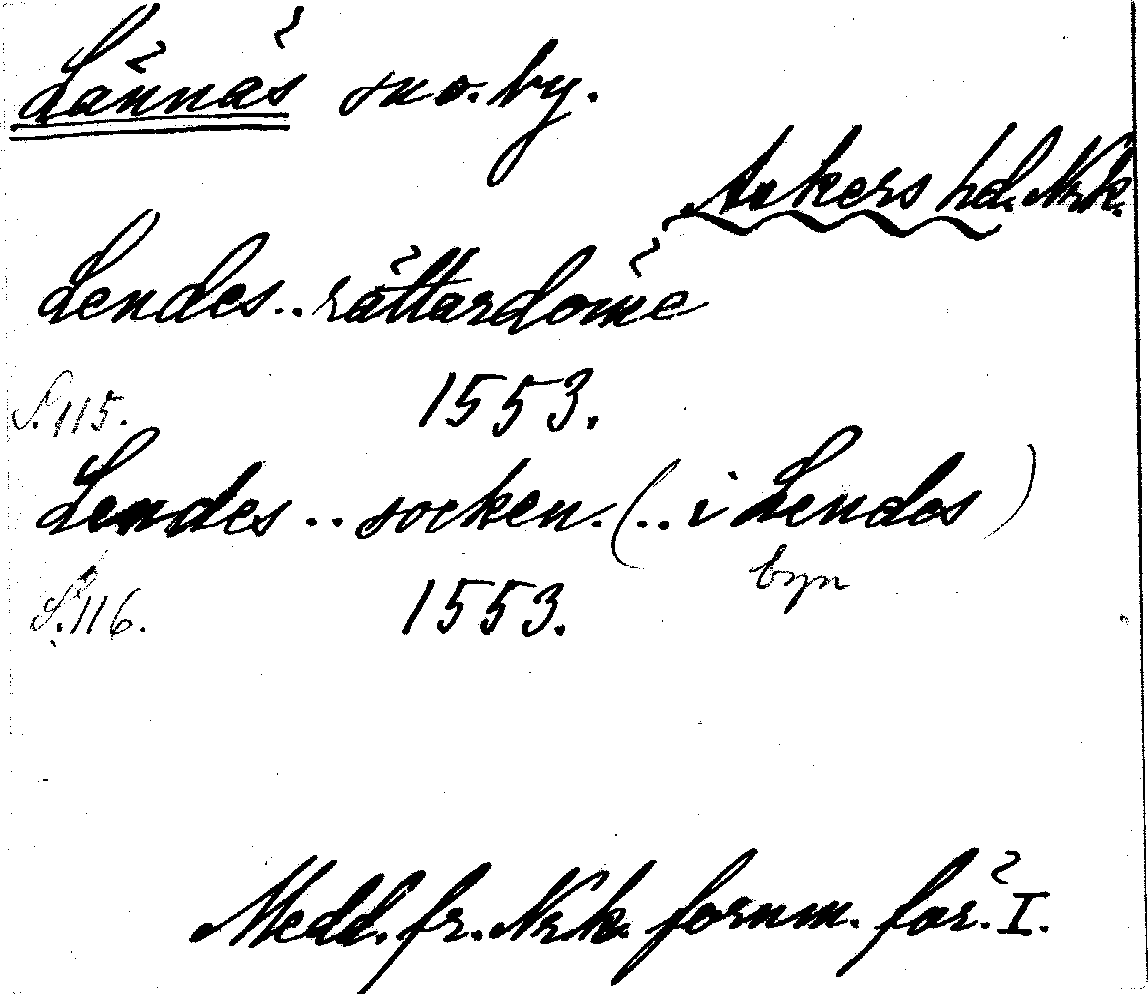 Lännäs sn o. by.
Askers hd. Nrk.
Lendes .. rättardöme
S. 115. 1553.
Lendes .. socken. (.. i Lendes)
byn
S. 116. 1553.
Medd. fr. Nrk. fornm. för. I.